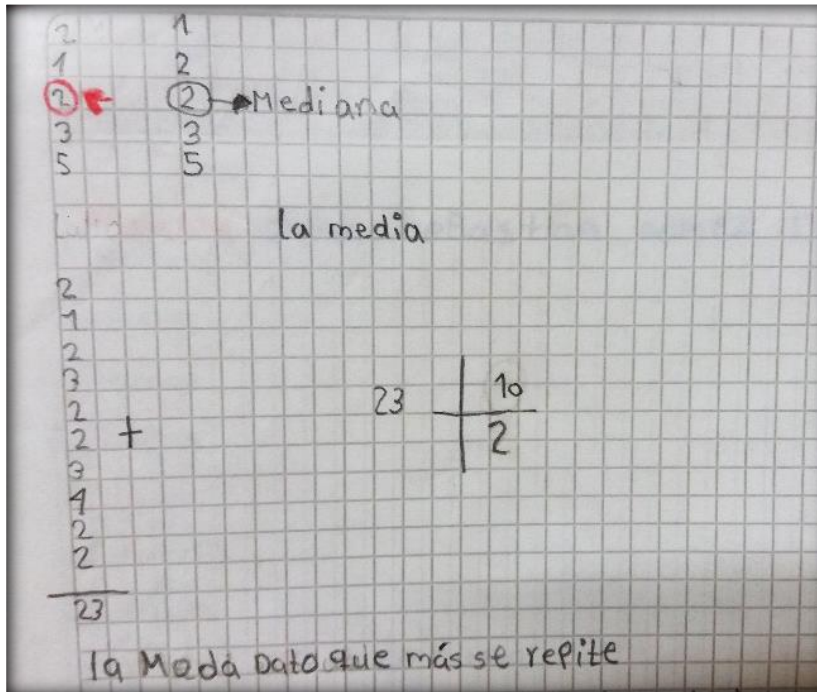 2 1
1 2
2 2 Mediana
3 3
5 5
la media
2
1
2
3
2
2 +
3
4
2
2
23
23 10
2
la Moda Dato que más se repite